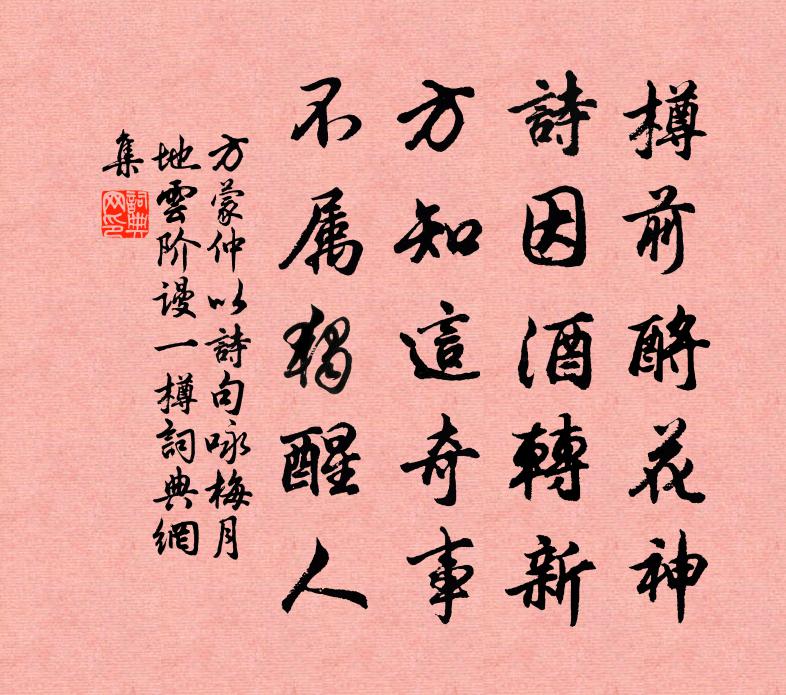 樽前酹花神
詩因酒轉新
方知這奇事
不属獨醒人
方蒙仲以詩句咏梅月
地雲阶谩一樽詞典網
集
詞典网印